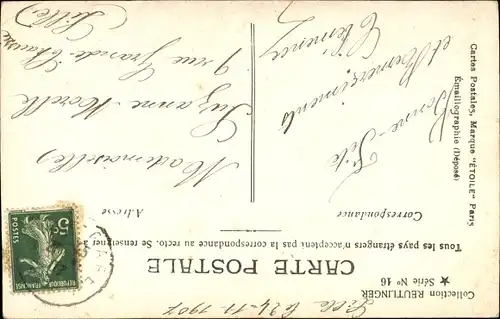 Lille le 24-11-1907
Collection REUTLINGER
Série No 16
★
CARTE POSTALE
Tous les pays étrangers n'acceptent pas la correspondance au recto. Se renseigner
Correspondance
Adresse
Bonne Fête
et Remerciements
Mademoiselle
Suzanne Morelle
9 rue Grande Chaussée
(Lille)
Cartes Postales, Marque "ÉTOILE" Paris
Émaillographie (Déposé)
5c
REPUBLIQUE FRANÇAISE
GARE